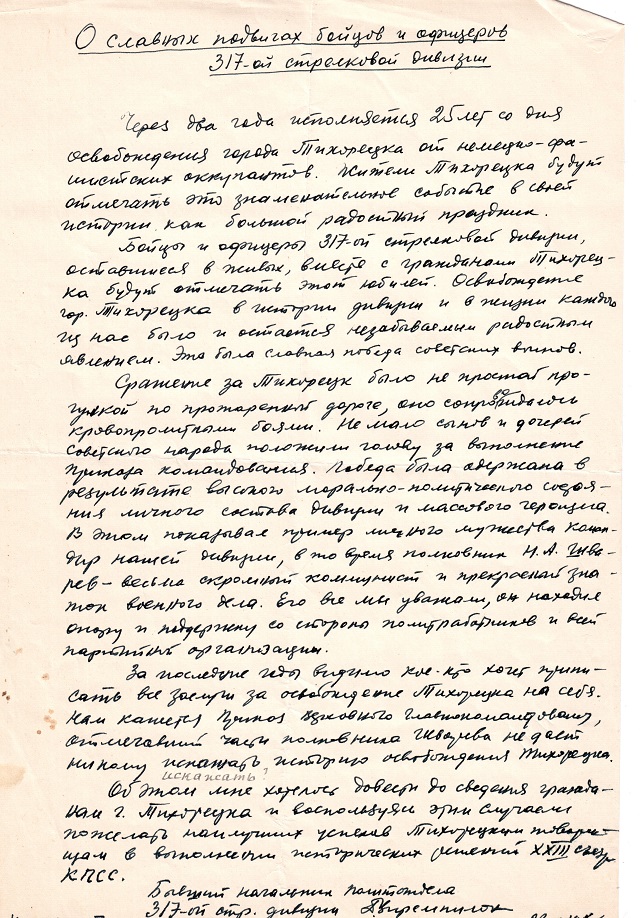 О славных подвигах бойцов и офицеров
317-ой стрелковой дивизии
Через два года исполняется 25 лет со дня
освобождения города Тихорецка от немецко-фа-
шистских оккупантов. Жители Тихорецка будут
отмечать это знаменательное событие в своей
истории как большой радостный праздник.
Бойцы и офицеры 317-ой стрелковой дивизии,
оставшиеся в живых, вместе с гражданами Тихорец-
ка будут отмечать этот юбилей. Освобождение
гор. Тихорецка в истории дивизии и в жизни каждого
из нас было и остается незабываемым радостным
явлением. Это была славная победа советских воинов.
Сражение за Тихорецк было не простой про-
гулкой по проторенной дороге, оно сопровождалось
кровопролитными боями. Не мало сынов и дочерей
советского народа положили голову за выполнение
приказа командования. Победа была одержана в
результате высокого морально-политического состоя-
ния личного состава дивизии и массового героизма.
В этом показывал пример личного мужества коман-
дир нашей дивизии, в то время полковник Н.А. Шва-
рев - весьма скромный коммунист и прекрасный зна-
ток военного дела. Его все мы уважали, он находил
опору и поддержку со стороны политработников и всей
партийной организации.
За последние годы видимо кое-кто хочет припи-
сать все заслуги за освобождение Тихорецка на себя.
Нам кажется Приказ Верховного Главнокомандования,
отмечавший части полковника Шварева не даст
никому искажать историю освобождения Тихорецка.
искажать?
Об этом мне хотелось довести до сведения гражда-
нам г. Тихорецка и воспользуясь этим случаем
пожелать наилучших успехов Тихорецким товари-
щам в выполнении исторических решений XXIII съезда
КПСС.
Бывший начальник политотдела
317-ой стр. дивизии